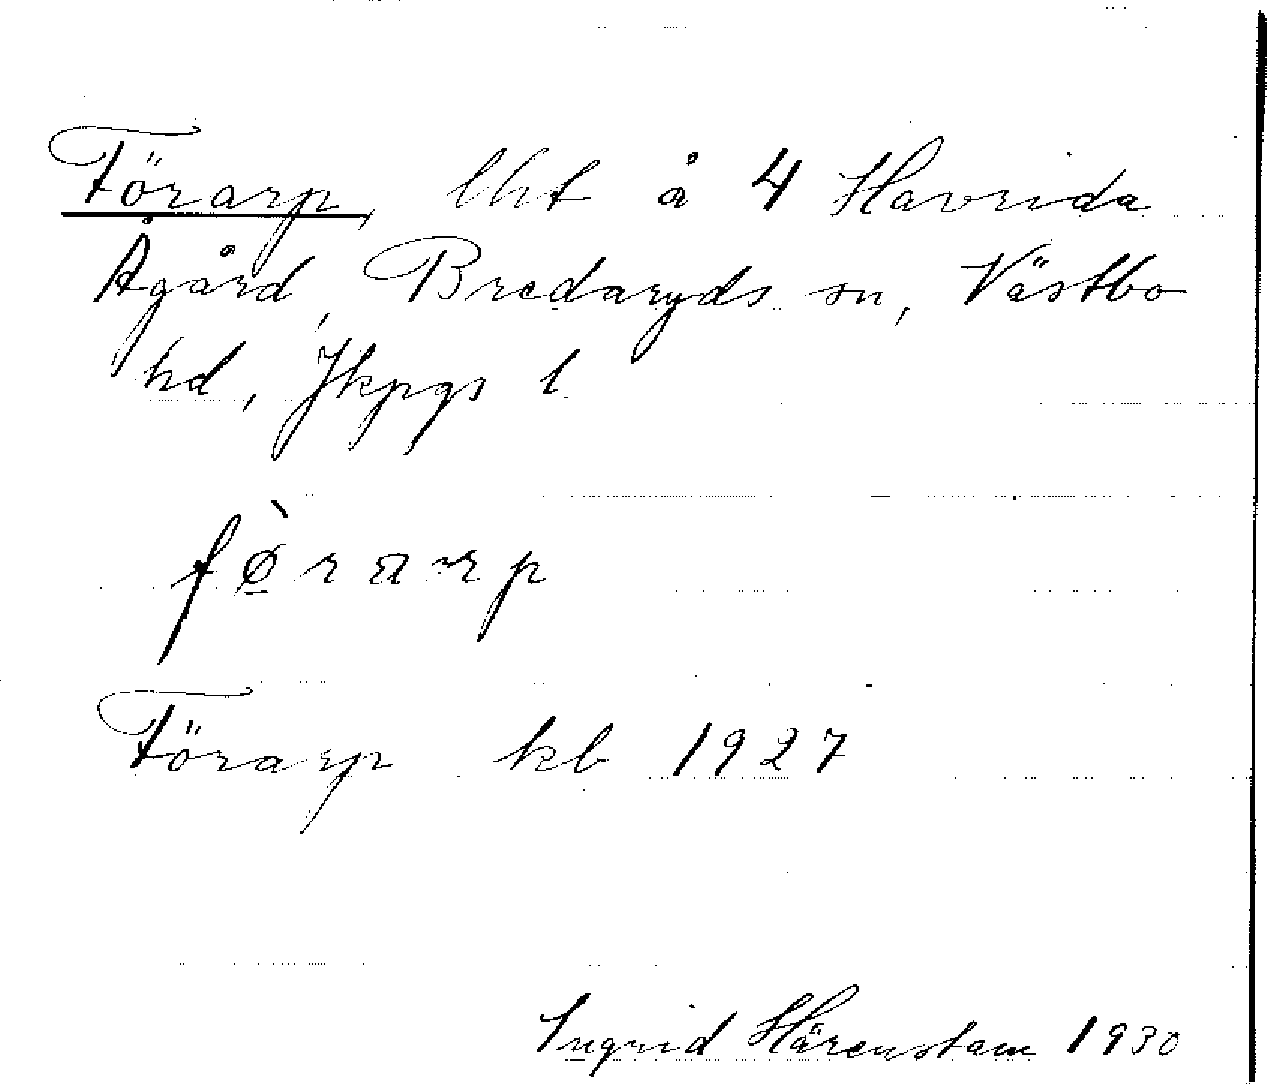 Förarp, lht å 4 Havrida
Ågård, Bredaryds sn, Västbo
hd, Jkpgs l.
fø̀rarp
Förarp kb 1927
Ingrid Härenstam 1930